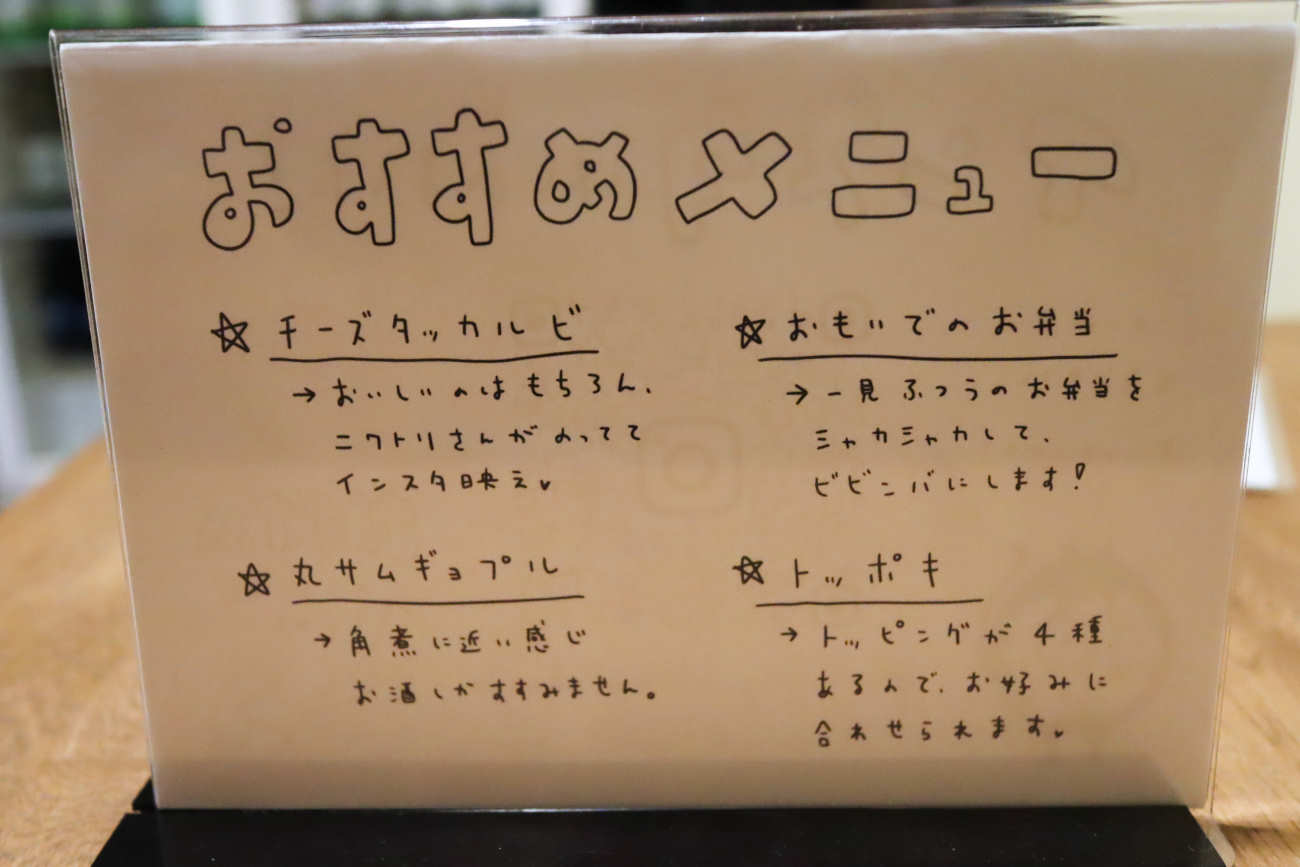 おすすめメニュー
☆ チーズタッカルビ
→ おいしいのはもちろん、
ニワトリさんがのってて
インスタ映え♥
☆ おもいでのお弁当
→ 一見ふつうのお弁当を
シャカシャカして、
ビビンバにします!
☆ 丸サムギョプル
→ 角煮に近い感じ
お酒しかすすみません。
☆ トッポキ
→ トッピングが4種
あるので、お好みに
合わせられます♥